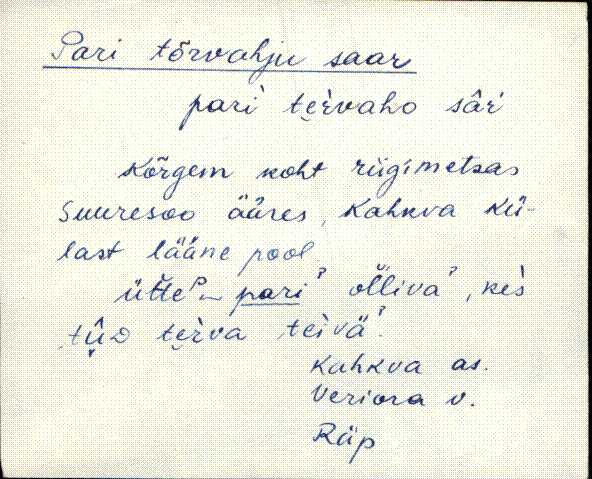 Pari tõrvahju saar
pari tęrvaho sâr
Kõrgem koht riigimetsas
Suuresoo ääres, Kahkva kü-
last lääne pool.
ütte pari olliva, kes
terva teivä.
Kahkva as.
Veriora v.
Räp